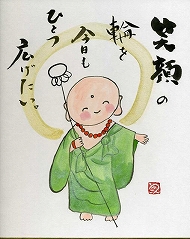 笑顔の
輪を
今日も
ひとつ
広げたい、